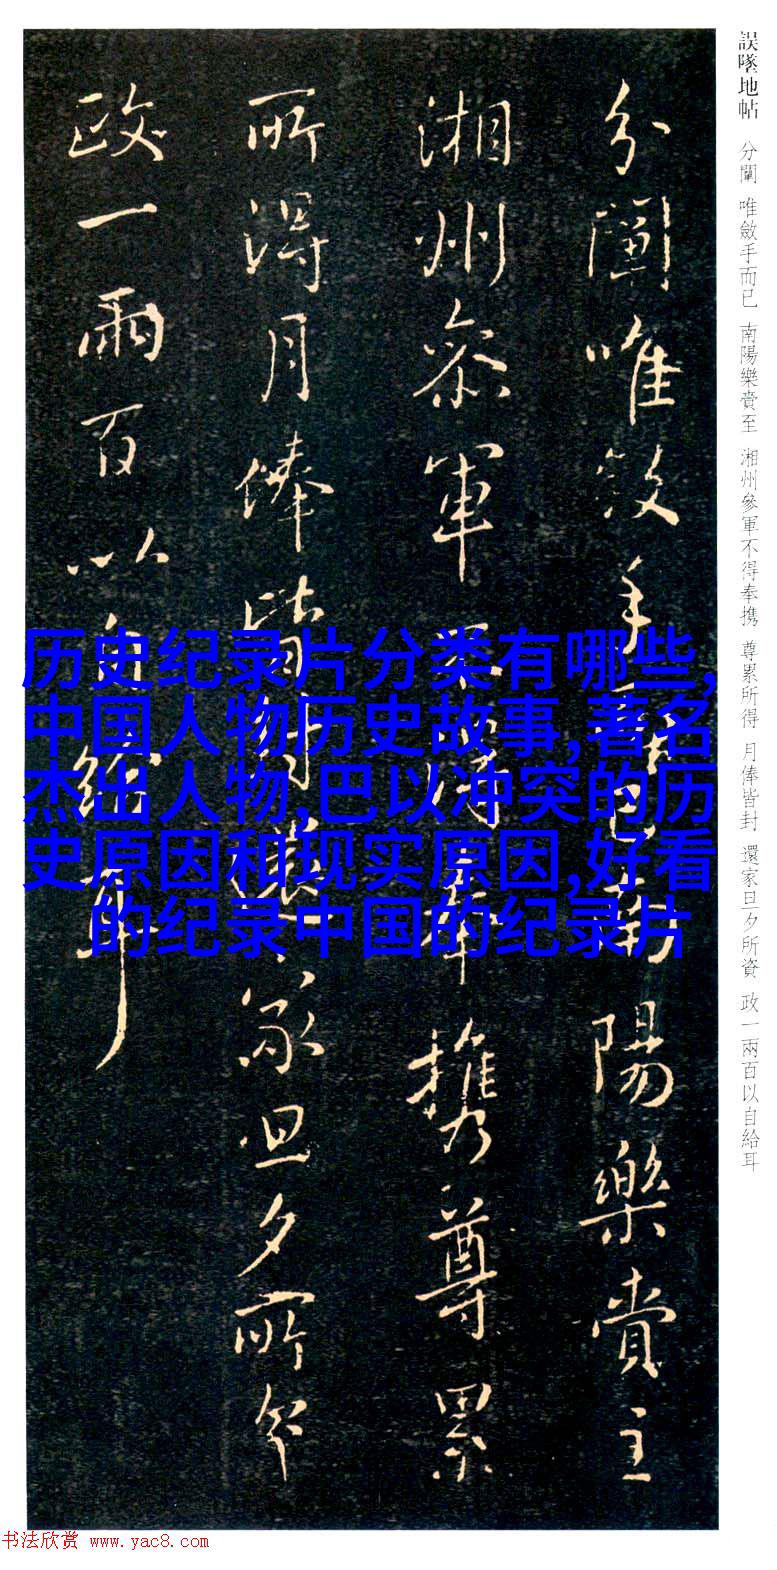 誤墜地帖 分闈 唯斂手而已 南陽樂賞至 湘州參軍不得奉携 尊累所得 月俸皆封 還家旦夕所資 政一兩百以自給耳
分闈唯斂手而已南陽樂賞至
湘州參軍不得奉携尊累
所得月俸皆封還家旦夕所資
政一兩百以自給耳
历史纪录片分类有哪些,
中国人物历史故事,著名
杰出人物,巴以冲突的历
史原因和现实原因,好看
的纪录中国的纪录片
书法欣赏 www.yac8.com